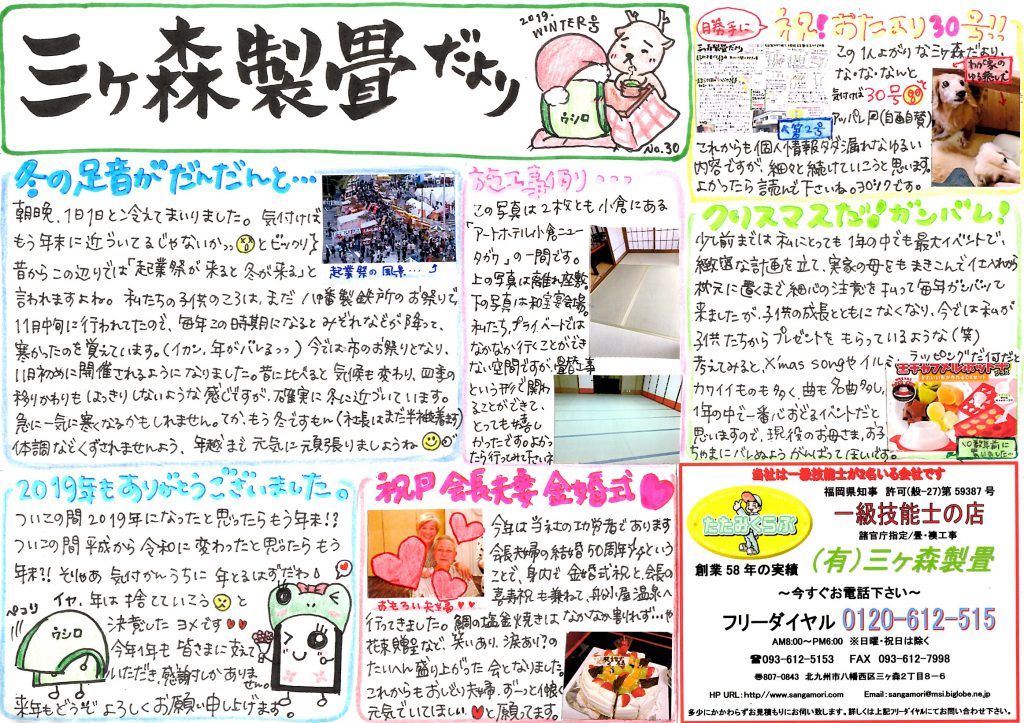 三ヶ森製畳だより
2019.
WINTER号
ウシロ
No.30
勝手に
祝!おたより30号!!
この1人よがりな三ヶ森だより、
な・な・なんと
気付けば30号
アッパレ(自画自賛)
わが家の
ゆる築して
第2号
これからも個人情報ダダ漏れなゆるい
内容ですが、細々と続けていこうと思います。
よかったら読んで下さいね。30ツクです。
冬の足音がだんだんと…
朝晩、1日1日と冷えてまいりました。気付けば
もう年末に近づいてるじゃないかっっとビックリ
昔からこの辺りでは「起業祭が来ると冬が来る」と
起業祭の風景…
言われますよね。私たちの子供のころは、まだ八幡製鉄所のお祭りで
11月中旬に行われてたので、毎年この時期になるとみぞれなどが降って、
寒かったのを覚えています。(イカン、年がバレるっっ)今では市のお祭りとなり、
11月初めに開催されるようになりました。昔に比べると気候も変わり、四季の
移りかわりもはっきりしないような感じですが、確実に冬に近づいています。
急に一気に寒くなるかもしれません。てか、もう冬ですもん(社長はまだ半袖着ます)
体調などくずされませんよう、年越まで元気に頑張りましょうね
施工事例り・・・
この写真は2枚とも小倉にある
「アートホテル小倉ニュー
タガワ」の一間です。
上の写真は離れ座敷、
下の写真は和室宴会場。
私たち、プライベートでは
なかなか行くことができ
ない空間ですが、畳替工事
という形で関わ
ることができて、
とっても嬉し
かったです。よかっ
たら行ってみて下さいネ
クリスマスだ!ガンバレ!
少し前までは私にとっても1年の中でも最大イベントで、
緻密な計画を立て、実家の母をもまきこんで仕入れから
枕元に置くまで細心の注意を払って毎年ガンバッて
来ましたが、子供の成長とともになくなり、今では私が
子供たちからプレゼントをもらっているような(笑)
考えてみると、X'mas songやイルミ、ラッピングだ何だと
カワイイものも多く、曲も名曲多し、
1年の中で一番心おどるイベントだと
思いますので、現役のお母さま、お子
ちゃまにバレぬようがんばってほしいです。
2019年もありがとうございました。
ついこの間2019年になったと思ったらもう年末!?
ついこの間平成から令和に変わったと思ったらもう
年末?!そりゃあ気付かんうちに年とるはずだわ
ぺコリ
イヤ、年は捨てていこうと
決意したヨメです
ウシロ
今年1年も皆さまに支えて
いただき、感謝しかありま
せん。
来年もどうぞよろしくお願い申し上げます。
祝 会長夫妻 金婚式
おもろい夫婦
今年は当社の功労者であります
会長夫婦の結婚50周年という
ことで、身内で金婚式祝と、会長の
喜寿祝も兼ねて、船小屋温泉へ
行ってきました。鯛の塩釜焼きはなかなか割れず…や
花束贈呈など、笑いあり、涙あり?の
たいへん盛り上がった会となりました。
これからもおしどり夫婦、ずーっと仲良く
元気でいてほしいと願ってます。
当社は一級技能士が2名いる会社です
たたみくらぶ
福岡県知事 許可(般-27)第59387号
一級技能士の店
諸官庁指定/畳・襖工事
創業58年の実績
(有)三ヶ森製畳
~今すぐお電話下さい~
フリーダイヤル 0120-612-515
AM8:00~PM6:00 ※日曜・祝日は除く
☎093-612-5153 FAX 093-612-7998
〒807-0843 北九州市八幡西区三ヶ森2丁目8-6
HP URL:http://www.sangamori.com Email:sangamori@msi.biglobe.ne.jp
多少にかかわらずお見積もりにお伺い致します。詳しくは上記フリーダイヤルにてお問い合わせ下さい。